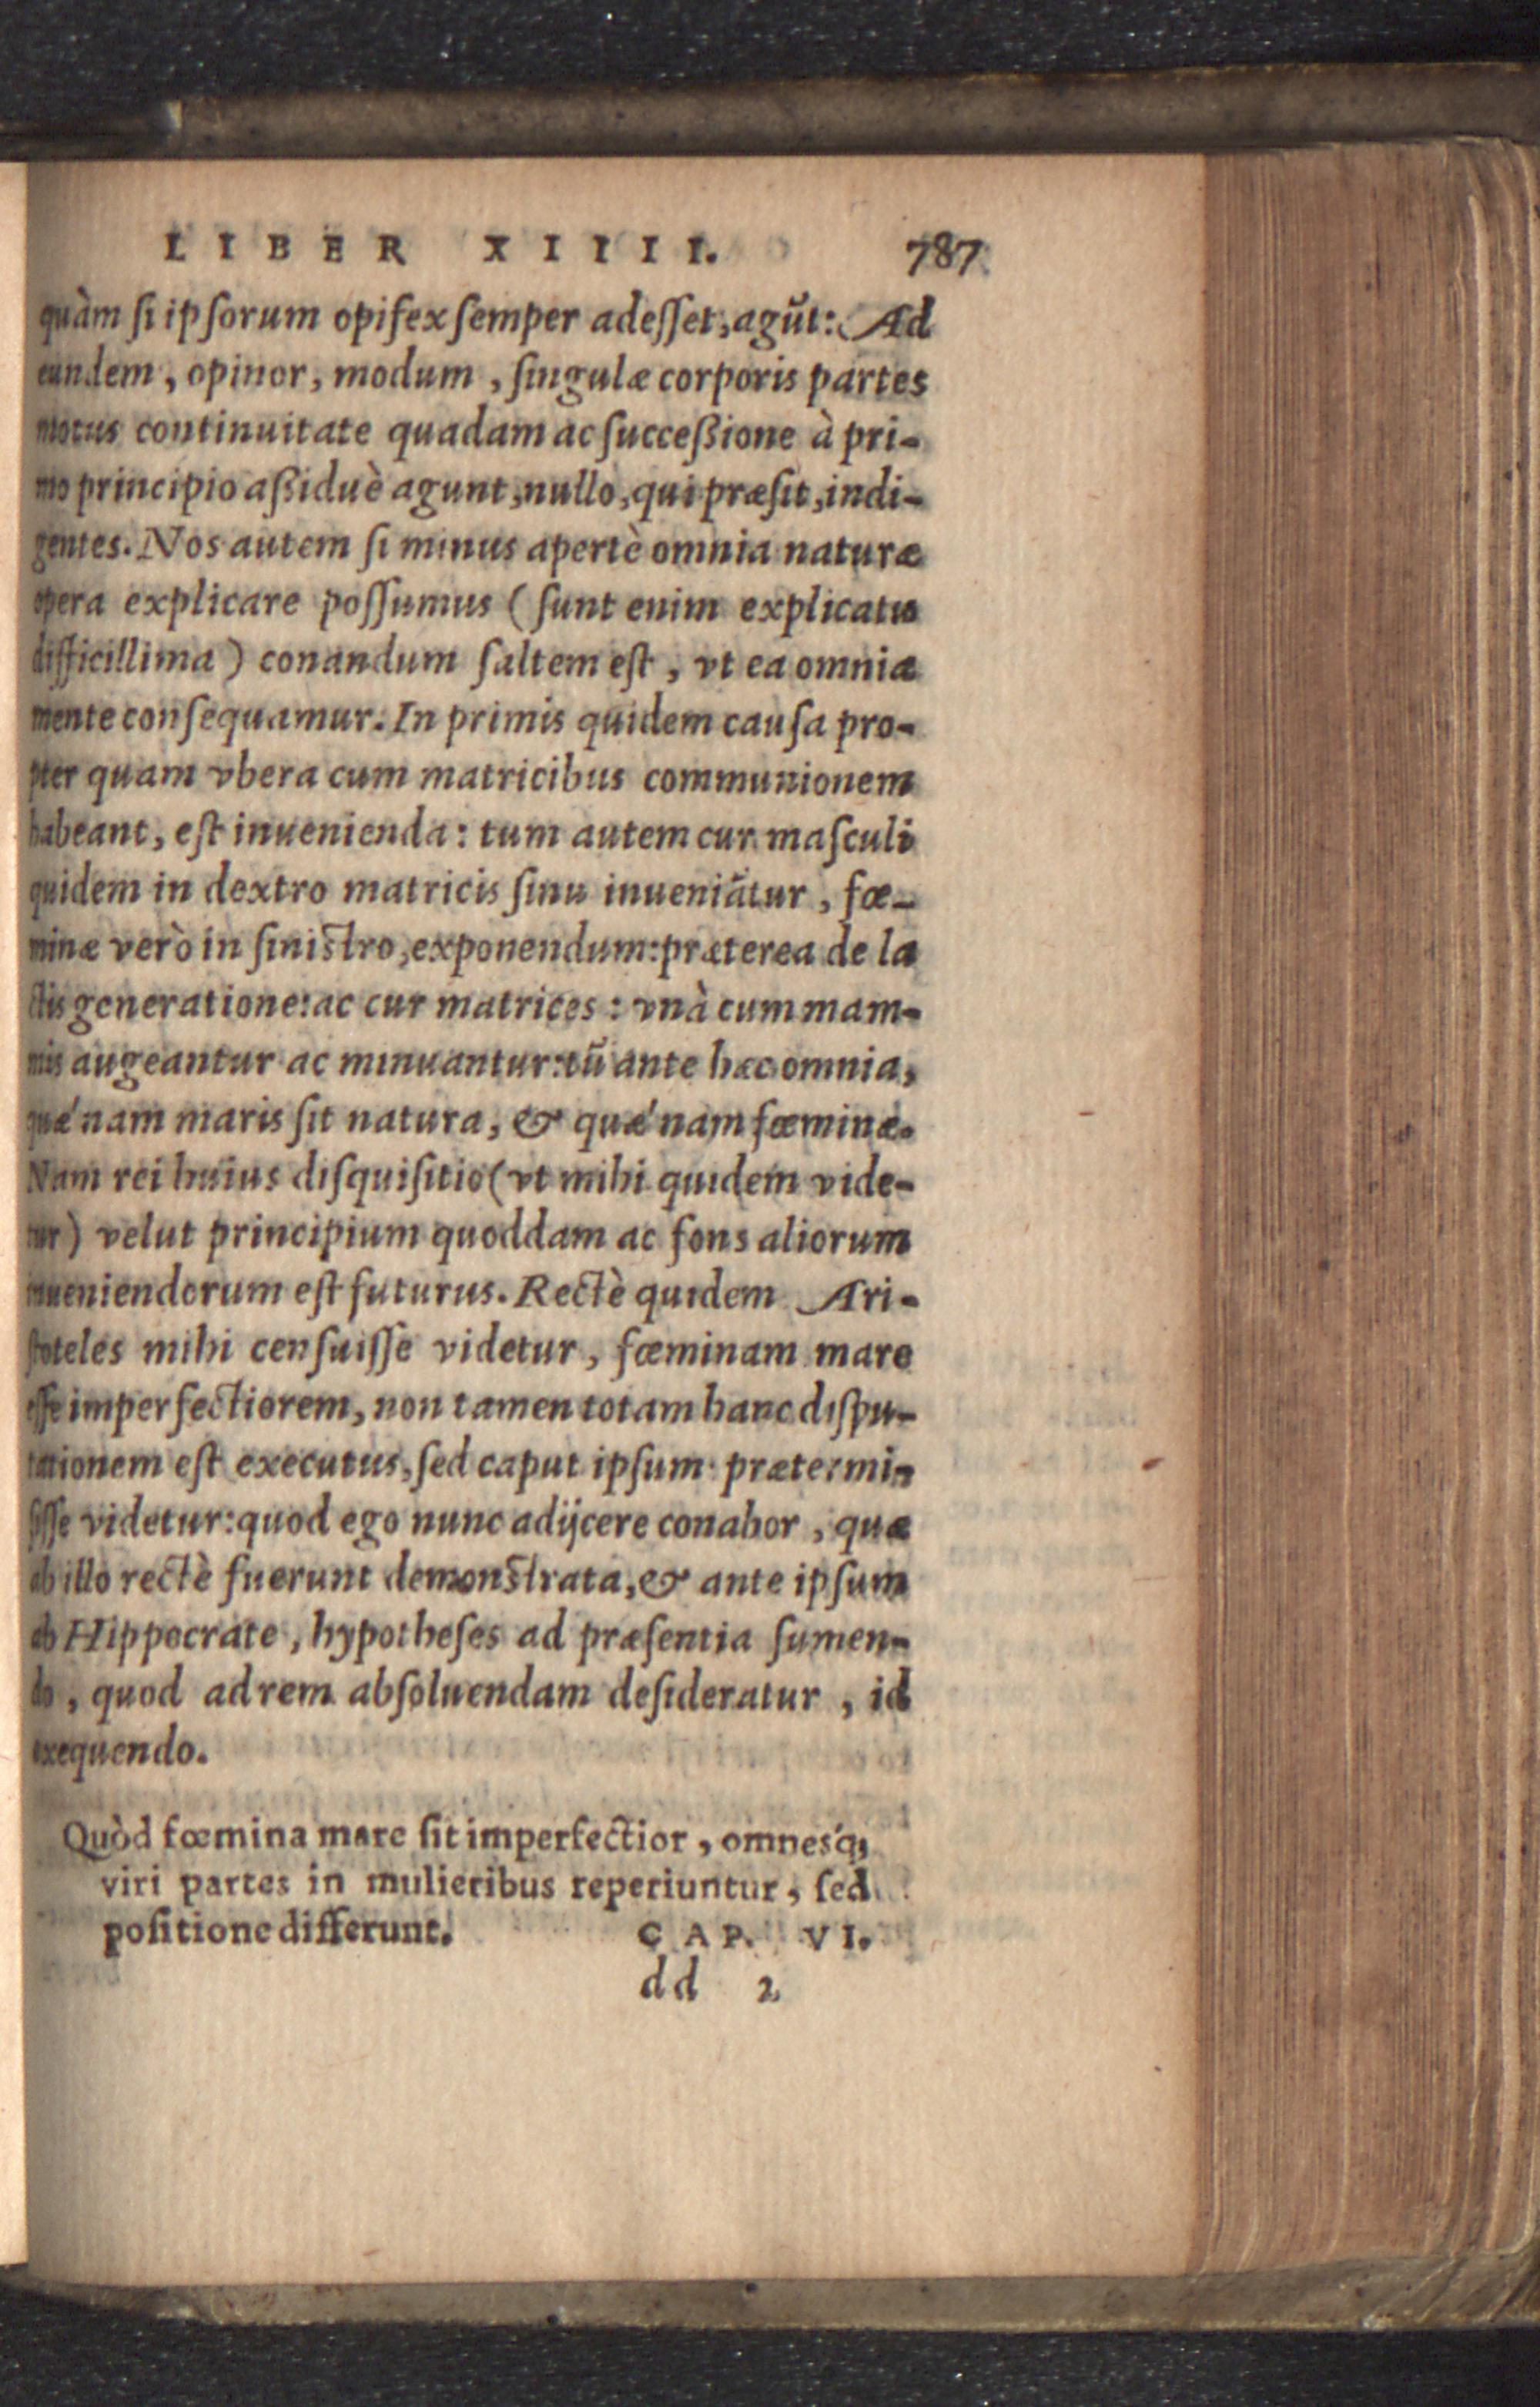 LIBER XIIII. 787
quàm ſi ipſorum opifex ſemper adeſſet, agũt: Ad
eundem, opinor, modum, ſingulæ corporis partes
motus continuitate quadam ac ſucceßione à pri-
mo principio aßiduè agunt, nullo, qui præſit, indi-
gentes. Nos autem ſi minus apertè omnia naturæ
opera explicare poſſumus (ſunt enim explicatu
difficillima) conandum ſaltem eſt, vt ea omnia
mente conſequamur. In primis quidem cauſa pro-
pter quam vbera cum matricibus communionem
habeant, eſt inuenienda: tum autem cur maſculi
quidem in dextro matricis ſinu inueniãtur, fœ-
minæ verò in siniſtro, exponendum: præterea de la
ctis generatione: ac cur matrices: vnà cum mam-
mis augeantur ac minuantur: tũ ante hæc omnia,
quæ´nam maris ſit natura, & quæ´nam fœminæ.
Nam rei huius diſquiſitio (vt mihi quidem vide-
tur) velut principium quoddam ac fons aliorum
inueniendorum eſt futurus. Rectè quidem Ari-
ſtoteles mihi cenſuiſſe videtur, fœminam mare
eſſe imperfectiorem, non tamen totam hanc diſpu-
tationem eſt executus, ſed caput ipſum prætermi-
ſiſſe videtur: quod ego nunc adijcere conabor, quæ
ab illo rectè fuerunt demonſtrata, & ante ipſum
ab Hippocrate, hypotheſes ad præſentia ſumen-
do, quod ad rem abſoluendam deſideratur, id
exequendo.
Quòd fœmina mare ſit imperfectior, omnesq́;
viri partes in mulieribus reperiuntur, ſed
poſitione differunt. CAP. VI.
dd 2